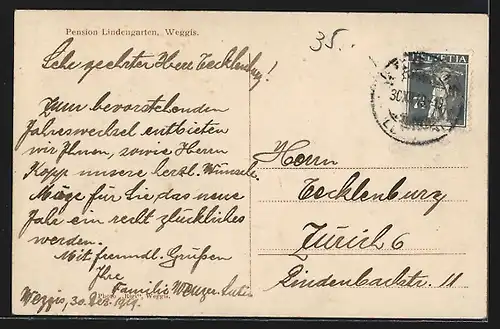 Pension Lindengarten, Weggis.
35.-
Sehr geehrter Herr Tecklenburg!
Zum bevorstehenden
Jahreswechsel entbieten
wir Ihnen, sowie Herrn
Kopp unsere herzl. Wünsche.
Möge für Sie das neue
Jahr ein recht glückliches
werden.
Mit freundl. Grüßen
Ihre
Familie
Weggis, 30. Dez. 1919.
Weggis.
HELVETIA
7½
Herrn
Tecklenburg
Zürich 6
Lindenbachstr. 11